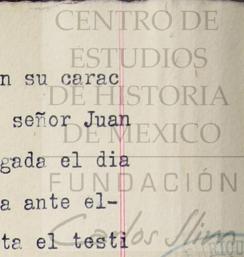 CENTRO DE
ESTUDIOS
n su carac
DE HISTORIA
señor Juan
DE MEXICO
gada el dia
FUNDACIÓN
a ante el-
Carlos Slim
ta el testi